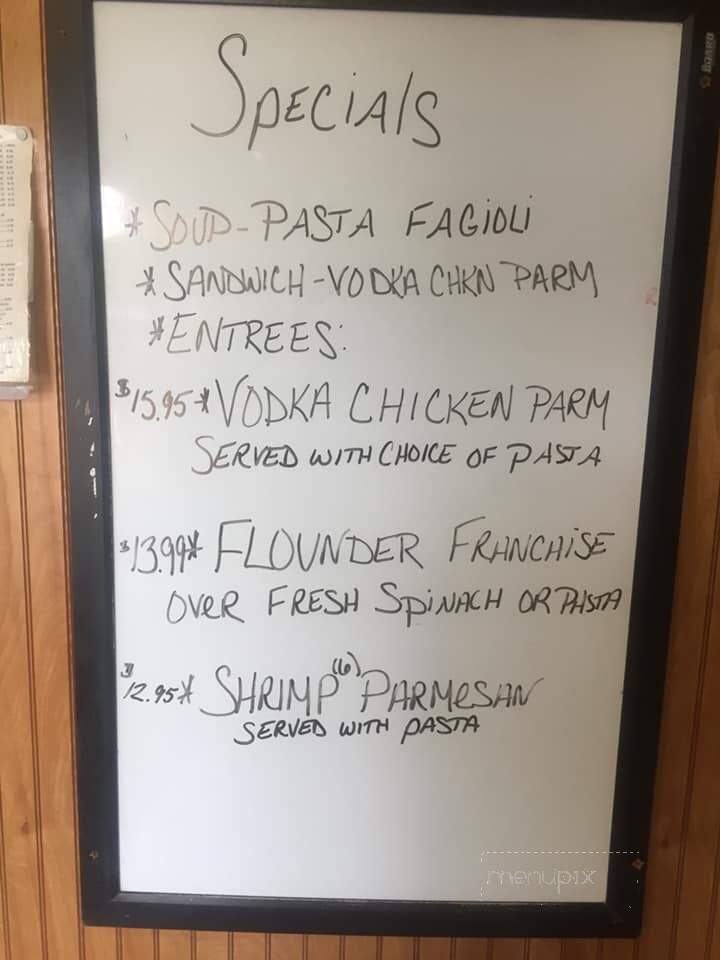 Specials
*SOUP-PASTA FAGIOLI
*SANDWICH-VODKA CHKN PARM
*ENTREES:
$15.95*VODKA CHICKEN PARM
SERVED WITH CHOICE OF PASTA
$13.99*FLOUNDER FRANCHISE
OVER FRESH SPINACH OR PASTA
$12.95*SHRIMP (6) PARMESAN
SERVED WITH PASTA
menupix